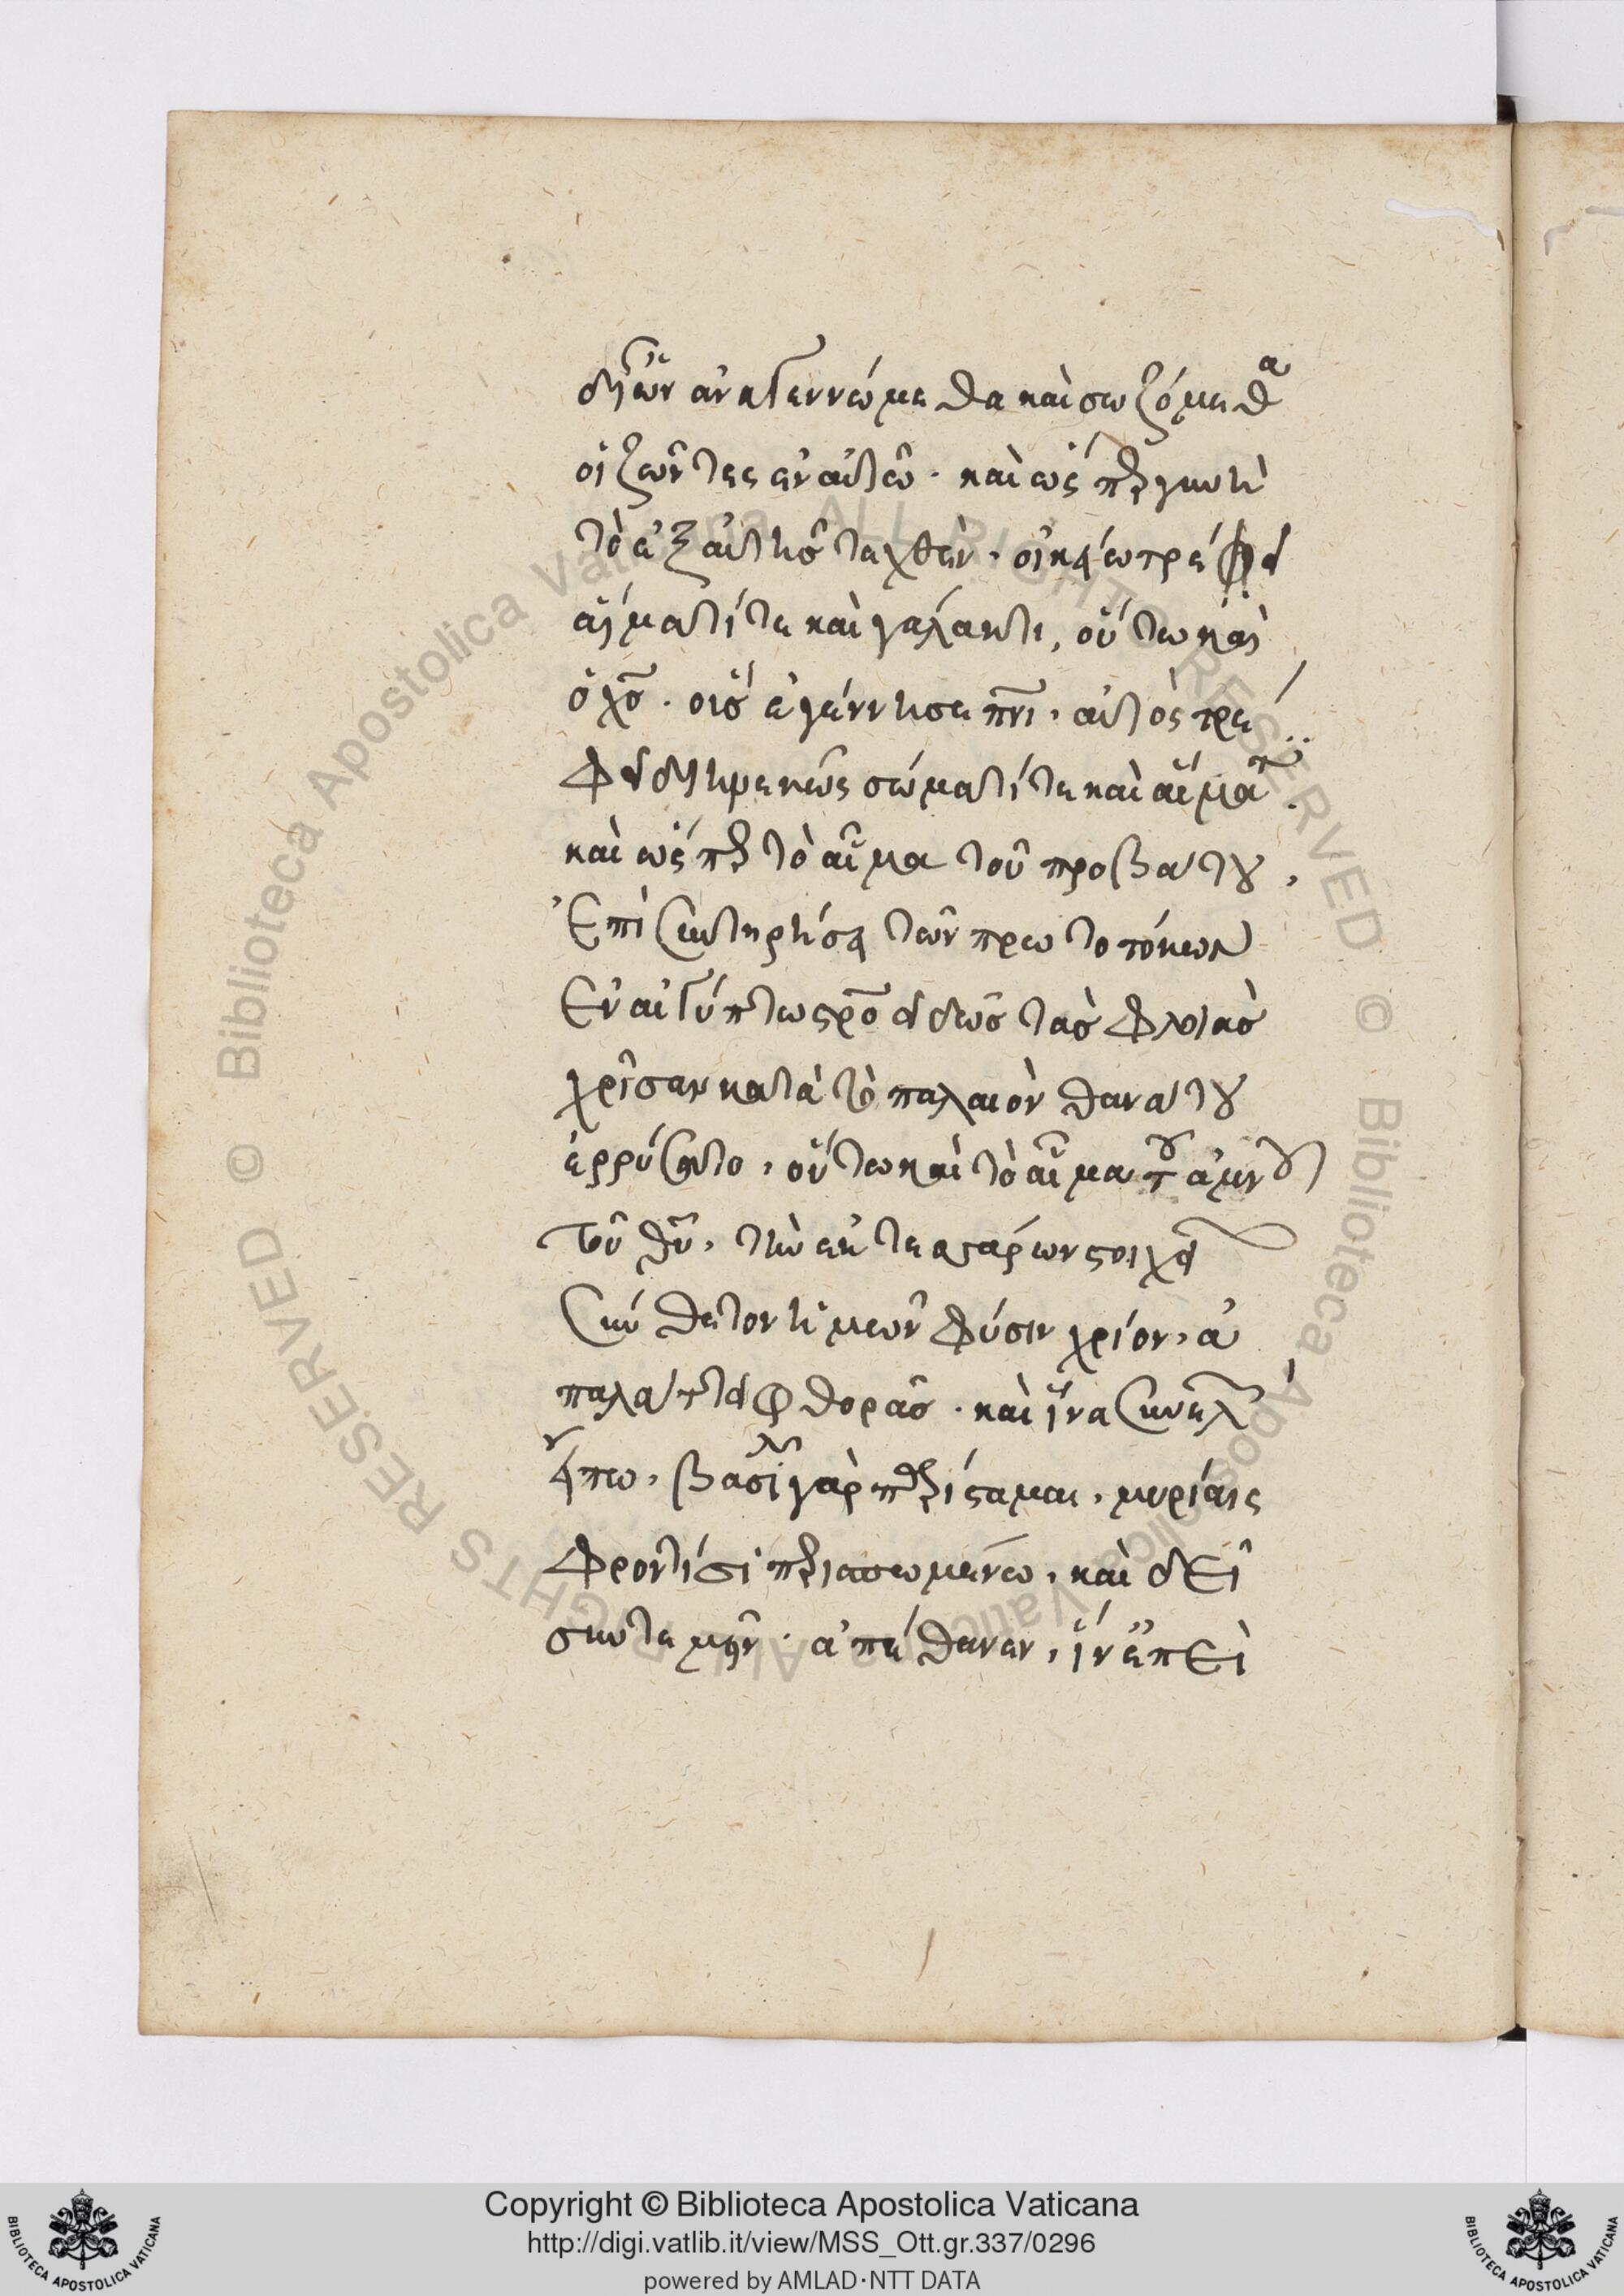 δι' ὧν ἀναγεννώμεθα καὶ σωζόμεθα
οἱ ζῶντες ἐν αὐτῶ· καὶ ὥσπερ γυνὴ
τὸ ἐξ αὐτῆς τεχθὲν, οἰκείω τρέφει
αἵματί τε καὶ γάλακτι, οὕτω καὶ
ὁ χς· οὓς ἐγέννησε πνι, αὐτὸς τρέ
φει διηνεκῶς σώματί τε καὶ αἵματι.
καὶ ὥσπερ τὸ αἷμα τοῦ προβάτου,
Ἐπὶ σωτηρίας τῶν πρωτοτόκων
Ἐν αἰγύπτω τὰς φλιὰς
χρῖσαν κατὰ τὸ παλαιὸν θανάτου
ἐρρύσατο, οὕτω καὶ τὸ αἷμα τοῦ ἀμνοῦ
τοῦ θυ, τὴν ἐκ τεσσάρων στοιχεί
σύνθετον ἡμῶν φύσιν χρίον, ἀ
παλάττει φθορᾶς· καὶ ἵνα συνελ
εἴπω, βασιλεῖ γὰρ παρίσταμαι, μυρίαις
φροντίσι περισπωμένω, καὶ δεῖ
συντεμεῖν· ἀπέθανεν, ἵν' ἐπεὶ